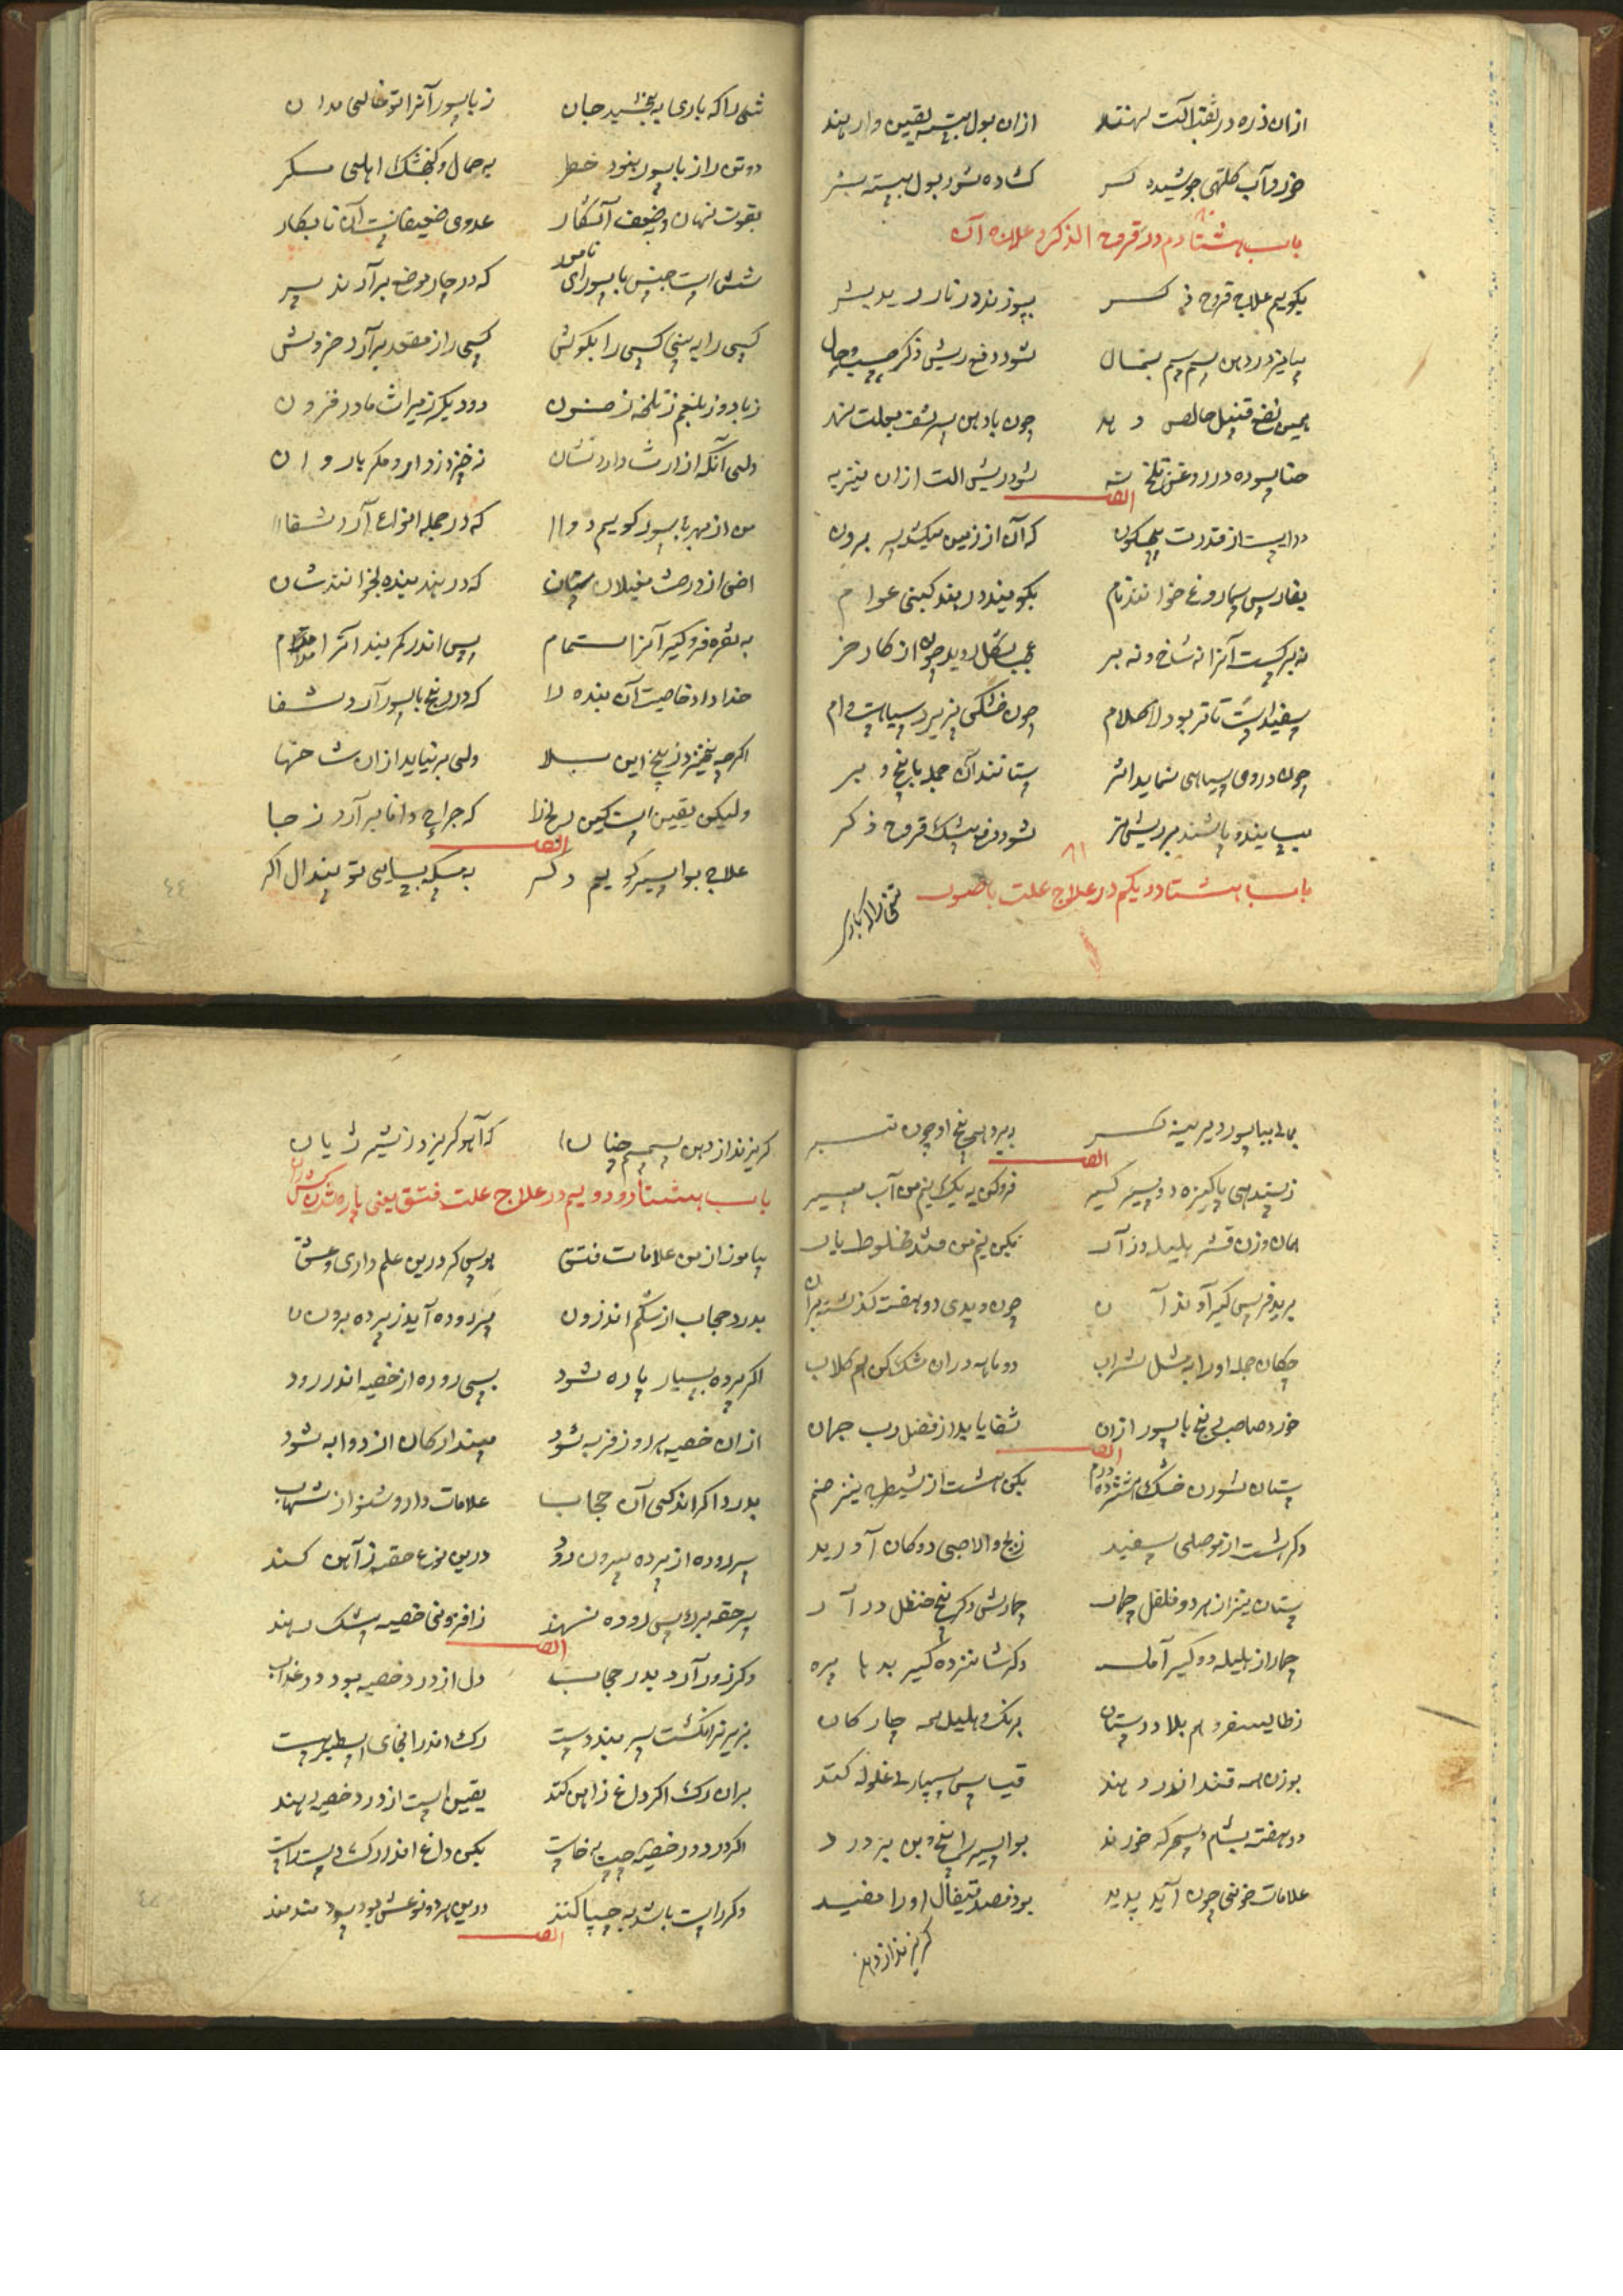 ازان ذره در ثقبه آلت نهند ازان بول بسته یقین وارهند
خورد آب کلتهی جوشیده کسر کشاده شود بول بسته بشر
باب هشتادم در قروح الذکر و علاج آن
بگویم علاج قروح ذکر بسوزند در نار
بیامیز در دهن سمسم بمال شود دفع ریش ذکر حسب حال
همین نفع قنبیل خالص دهد چون با دهن سرشف بعلت نهد
حنا سوده در روغن تلخ نه شود ریش الت ازان نیز به
دوا ایست از قدرت بیچگون که آن از زمین میکشد سر برون
بفارس سماروغ خوانند نام بگویند در هند کبنی عوام
نه برگست آنرا نه شاخ و نه بر عجب شکل روید چون از کاد خر
سفید است تا تر بود لاکلام چون خشکی پذیرد سیاهست وام
چون در وی سیاهی نماید اثر ستانند آن جمله با بیخ و بر
بسایند و پاشند بر ریش تر شود دفع بیشک قروح ذکر
باب هشتاد و یکم در علاج علت باسور
تنی را که باری
تنی را که باری به بخشید جان ز باسور آنرا تو خالی مدان
دو تن را ز باسور نبود خطر یه حمال و کنجشک اهلی مسکر
بقوت نهان و بضعف آشکار عدوی ضعیفانست آن نابکار
شش است جنس باسور ای نامور که در چار موضع برآرند سر
کسی را به بینی کسی را بکوش کسی را ز مقعد برآرد خروش
ز باد و ز بلغم ز تلخه ز خون دو دیگر ز میراث مادر فزون
ولی آنکه از ارث دارد نشان نه خیزد ز دارو مکر باروان
من از بهر باسور گویم دوا که در جمله انواع آرد شفا
اخی از درخت مغیلان ستان که در هند بنده بخوانندشان
به نقره فروگیر آنرا تمام پس اندر کمر بند آنرا مدام
خدا داد خاصیت آن بنده را که در رنج باسور آرد شفا
اکرچه نخیزد ز بیخ این بلا ولی برنیاید ازان شاخها
ولیکن یقین است کین رنج را که جراح دانا برآرد ز جا
علاج بواسیر گویم دکر به مسکه بسایی تو هندال اکر
بمالی بباسور دیرینه کر ببرد همی بیخ او چون تبر
ز سیندهی پاکیزه دو سیر گیر فروکن به یک نیم من آب سیر
همان وزن قشر بلیله در آر یکی نیم من قند مخلوط یار
بزیر فرس گیر آوند آن چون دیدی دو هفته گذشته بران
چکان جمله او را به مثل شراب دو ماهه دران مشک کن هم گلاب
خورد صاحب رنج باسور ازان شفا یابد از فضل رب جهان
ستان سورن خشک شانزده درم یکی هشت از شیطره نیز ضم
دکر هشت از موصلی سفید ز بخ والاچی دوکان آورید
ستان نیز از هر دو فلفل چهار چهارش دکر بیخ حنظل در آر
چهار از بلیله دو گیر آمله دکر شانزده گیر بدهاره
ز طالیسفر و هم بلادر ستان برنک و هلیله همه چار کان
بوزن همه قند اندر دهند قیاس سپاری غلوله کنند
دو هفته بشام و سحر که خورند بواسیر را بیخ و بن برورد
علامات خونی چون آید پدید بود فصد قیفال او را مفید
گریزند از دهن
گریزند از دهن سمسم چنان که آهو گریزد ز شیر ژیان
باب هشتاد و دویم در علاج علت فتق یعنی پاره شدن
بیاموز از من علامات فتق هوس کر درین علم داری و عشق
بدرد حجاب از شکم اندرون سر روده آید ز پرده برون
اکر پرده بسیار پاره شود بسی روده از خصیه اندر رود
ازان خصیه هر روز فربه شود مپندار کان از دوا به شود
بدرد اکر اندکی آن حجاب علامات دارو شنو از شهاب
سر روده از پرده بیرون رود درین نوع حقه ز آهن کنند
سر حقه بر راس روده نهند ز افزونی خصیه بیشک رهند
وکر زور آرد بدرد حجاب دل از درد خصیه بود در عذاب
بزیر نر انکشت سر بند دست رک اندر انجای اسطبر هست
بران رک اکر داغ ز آهن کنند یقین است از درد خصیه رهند
اکر درد در خصیه چپ بخاست بکن داغ اندر رک دست راست
وکر راست باشد به چپها کنند درین هر دو نوعش بود سودمند